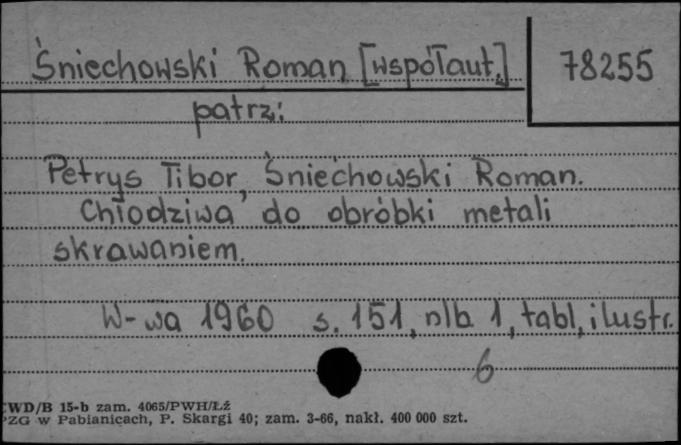 Śniechowski Roman [współaut.] 78255
patrz:
Petrys Tibor, Śniechowski Roman.
Chłodziwa do obróbki metali
skrawaniem.
W-wa 1960 s. 151, nlb 1, tabl, ilustr.
6
CWD/B 15-b zam. 4065/PWH/Łź
PZG w Pabianicach, P. Skargi 40; zam. 3-66, nakł. 400 000 szt.